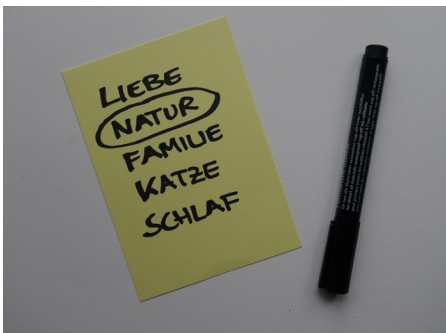 LIEBE
NATUR
FAMILIE
KATZE
SCHLAF